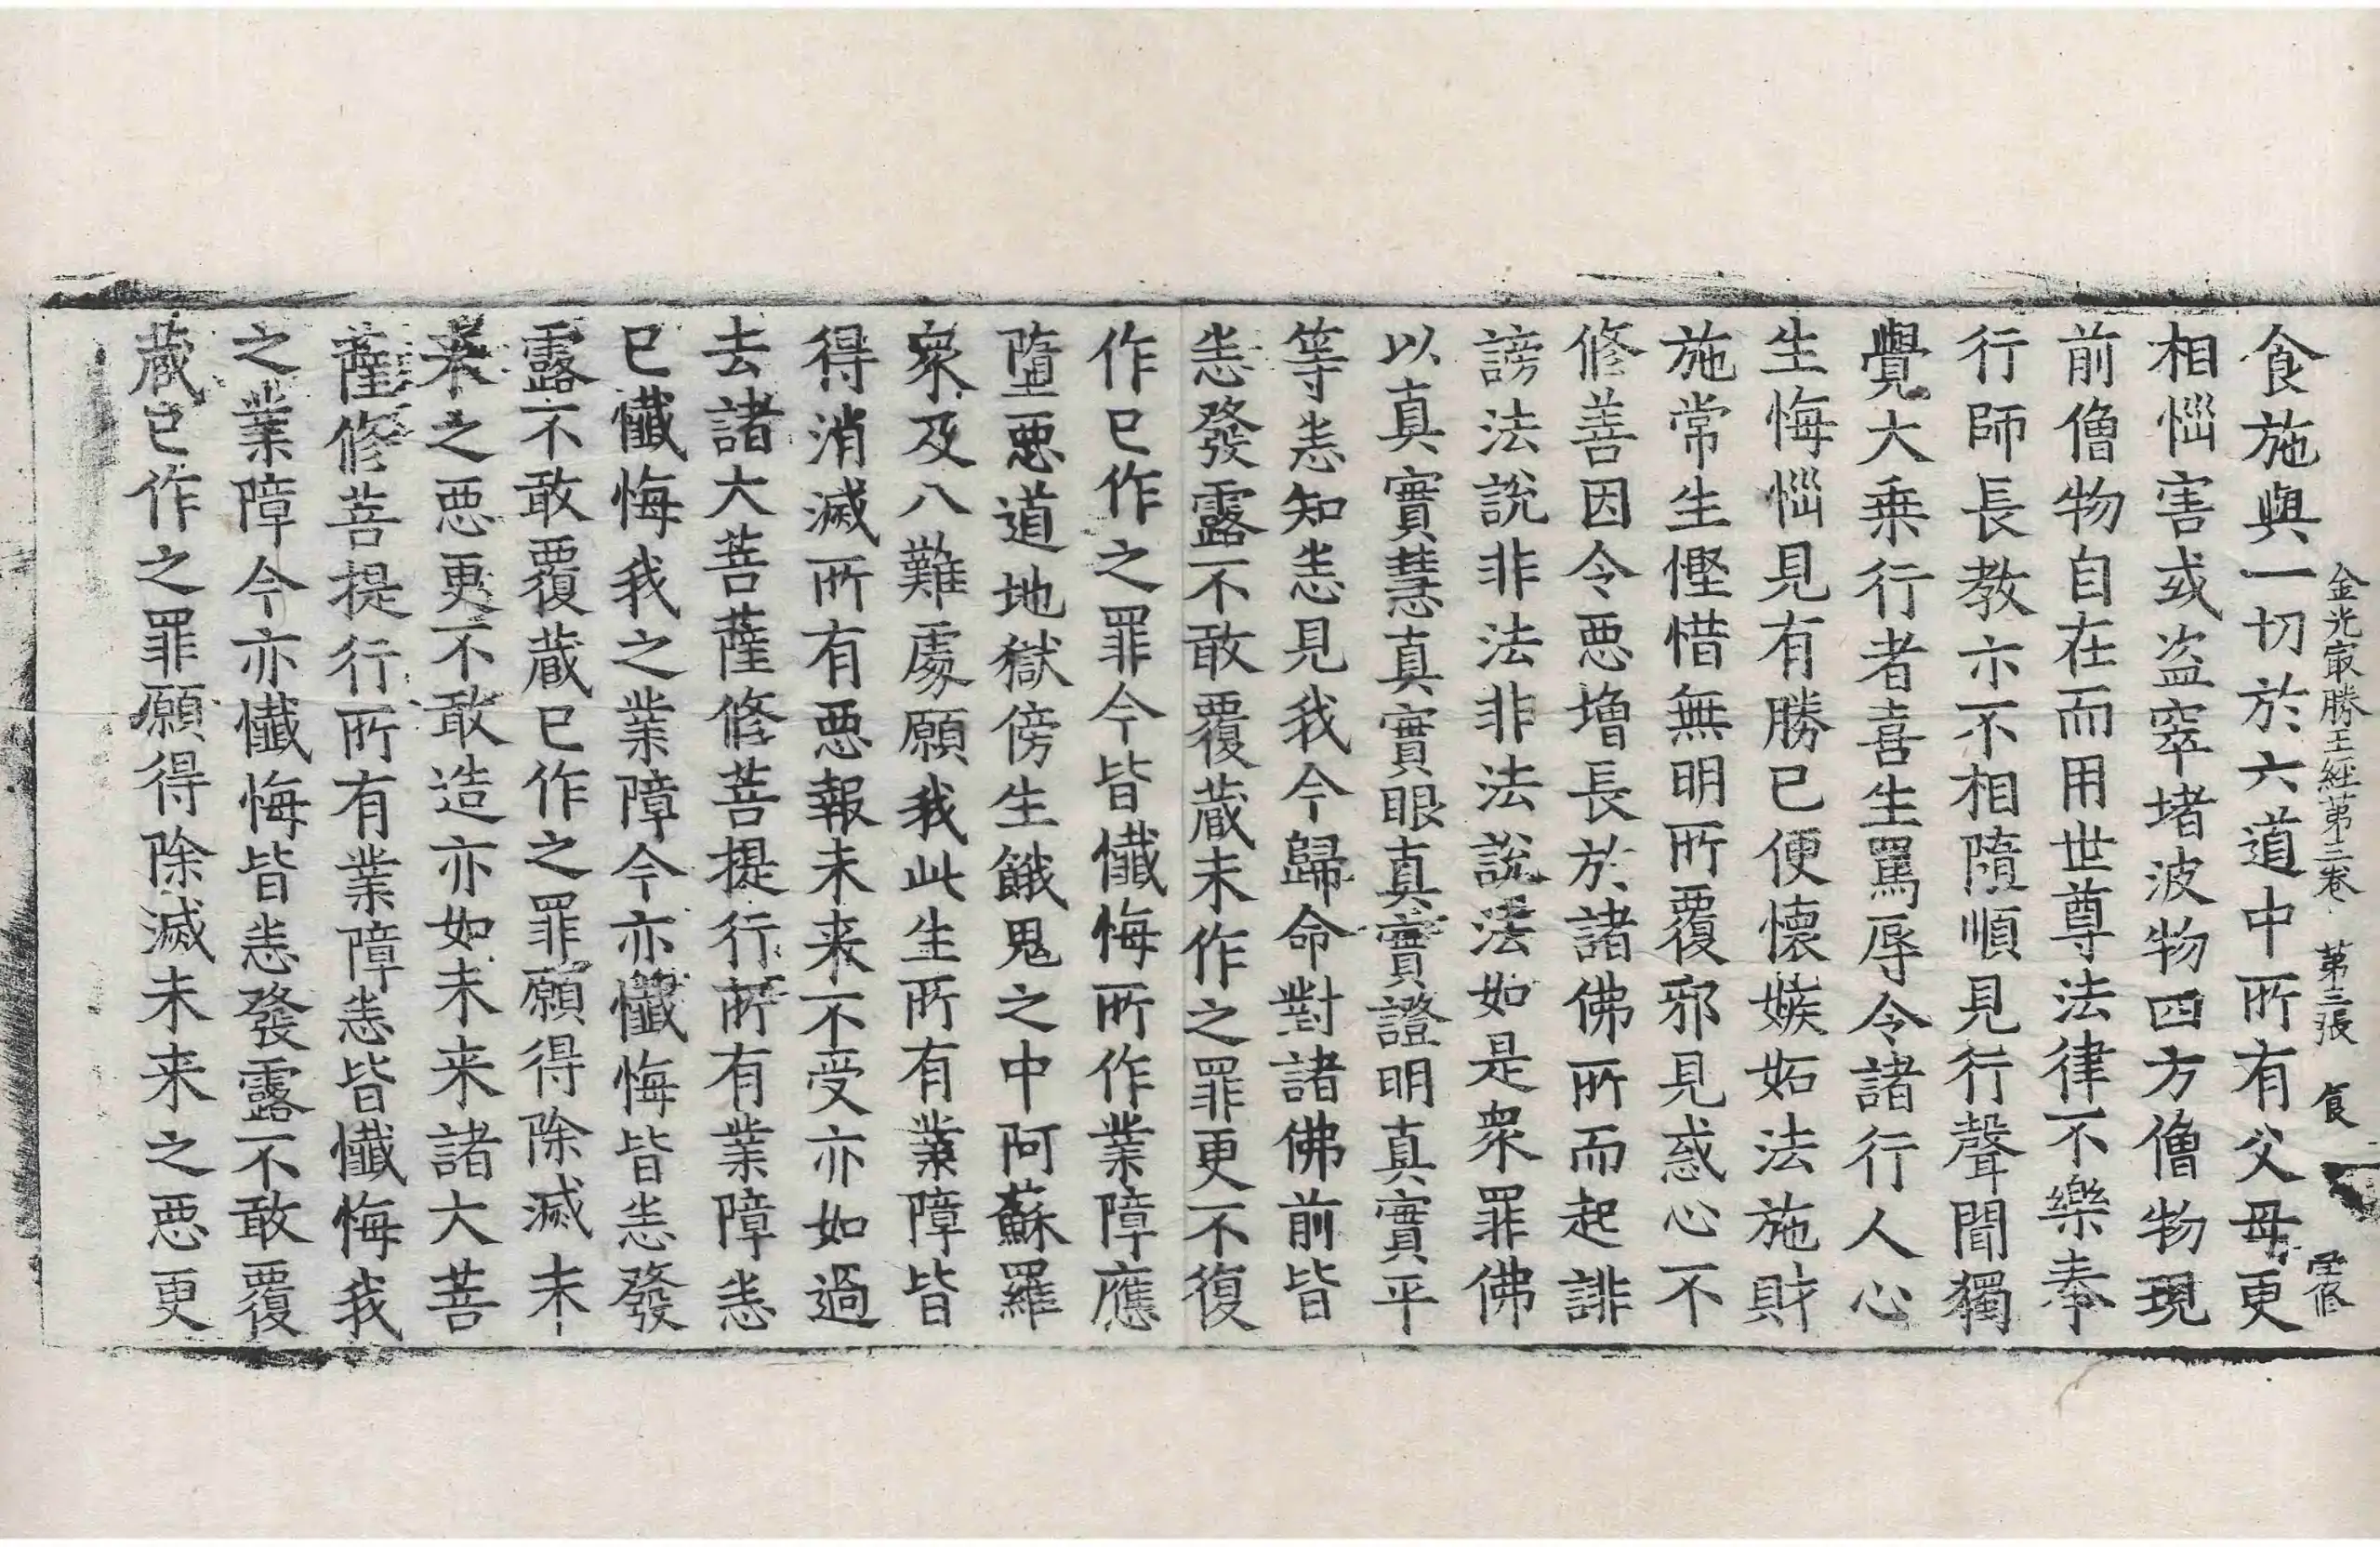 金光㝡勝王經第三卷 第三張 食
食施與一切於六道中所有父母更
相惱害或盜窣堵波物四方僧物現
前僧物自在而用世尊法律不樂奉
行師長教亦不相隨順見行聲聞獨
覺大乗行者喜生罵辱令諸行人心
生悔惱見有勝已便懷嫉妬法施財
施常生慳惜無明所覆邪見惑心不
修善因令惡增長於諸佛所而起誹
謗法說非法非法說法如是衆罪佛
以真實慧真實眼真實證明真實平
等悉知悉見我今歸命對諸佛前皆
悉發露不敢覆蔵未作之罪更不復
作已作之罪今皆懺悔所作業障應
墮惡道地獄傍生餓鬼之中阿蘇羅
衆及八難處願我此生所有業障皆
得消滅所有惡報未来不受亦如過
去諸大菩薩修菩提行所有業障悉
已懺悔我之業障今亦懺悔皆悉發
露不敢覆蔵已作之罪願得除滅未
来之惡更不敢造亦如未来諸大菩
薩修菩提行所有業障悉皆懺悔我
之業障今亦懺悔皆悉發露不敢覆
蔵已作之罪願得除滅未来之惡更